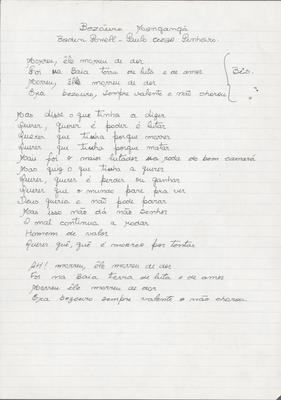 Bezouro Mangangá
Baden Powell - Paulo Cesar Pinheiro.
Morreu, êle morreu de dor
Foi na Baia terra de luta e de amor
Morreu, êle morreu de dor
Era bezouro, sempre valente e não chorou
Bis.
Mas disse o que tinha a dizer
Querer, querer é poder é lutar
Querer que tinha porque morrer
Querer que tinha porque matar
Mais foi o maior lutador na roda do bom camará
Mas quiz o que tinha a querer
Querer, querer é perder ou ganhar
Querer que o mundo pare pra ver
Deus queria e não pode parar
Mas isso não dá não Senhor
O mal continua a rodar
Homem de valor
Querer quê, quê é morrer por tentar
AH! morreu, êle morreu de dor
Foi na Baia terra de luta e de amor
Morreu êle morreu de dor
Era bezouro sempre valente e não chorou